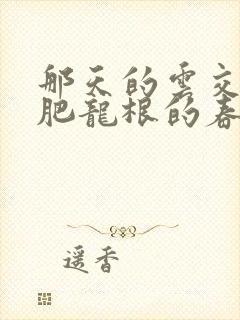 那天的雲交
肥龍根的春
遥香